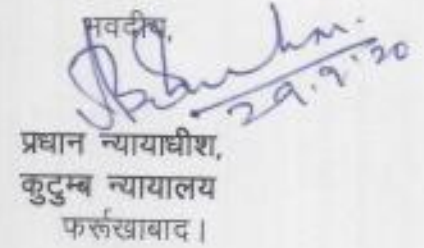 भवदीय,
29.9.20
प्रधान न्यायाधीश,
कुटुम्ब न्यायालय
फर्रूखाबाद।